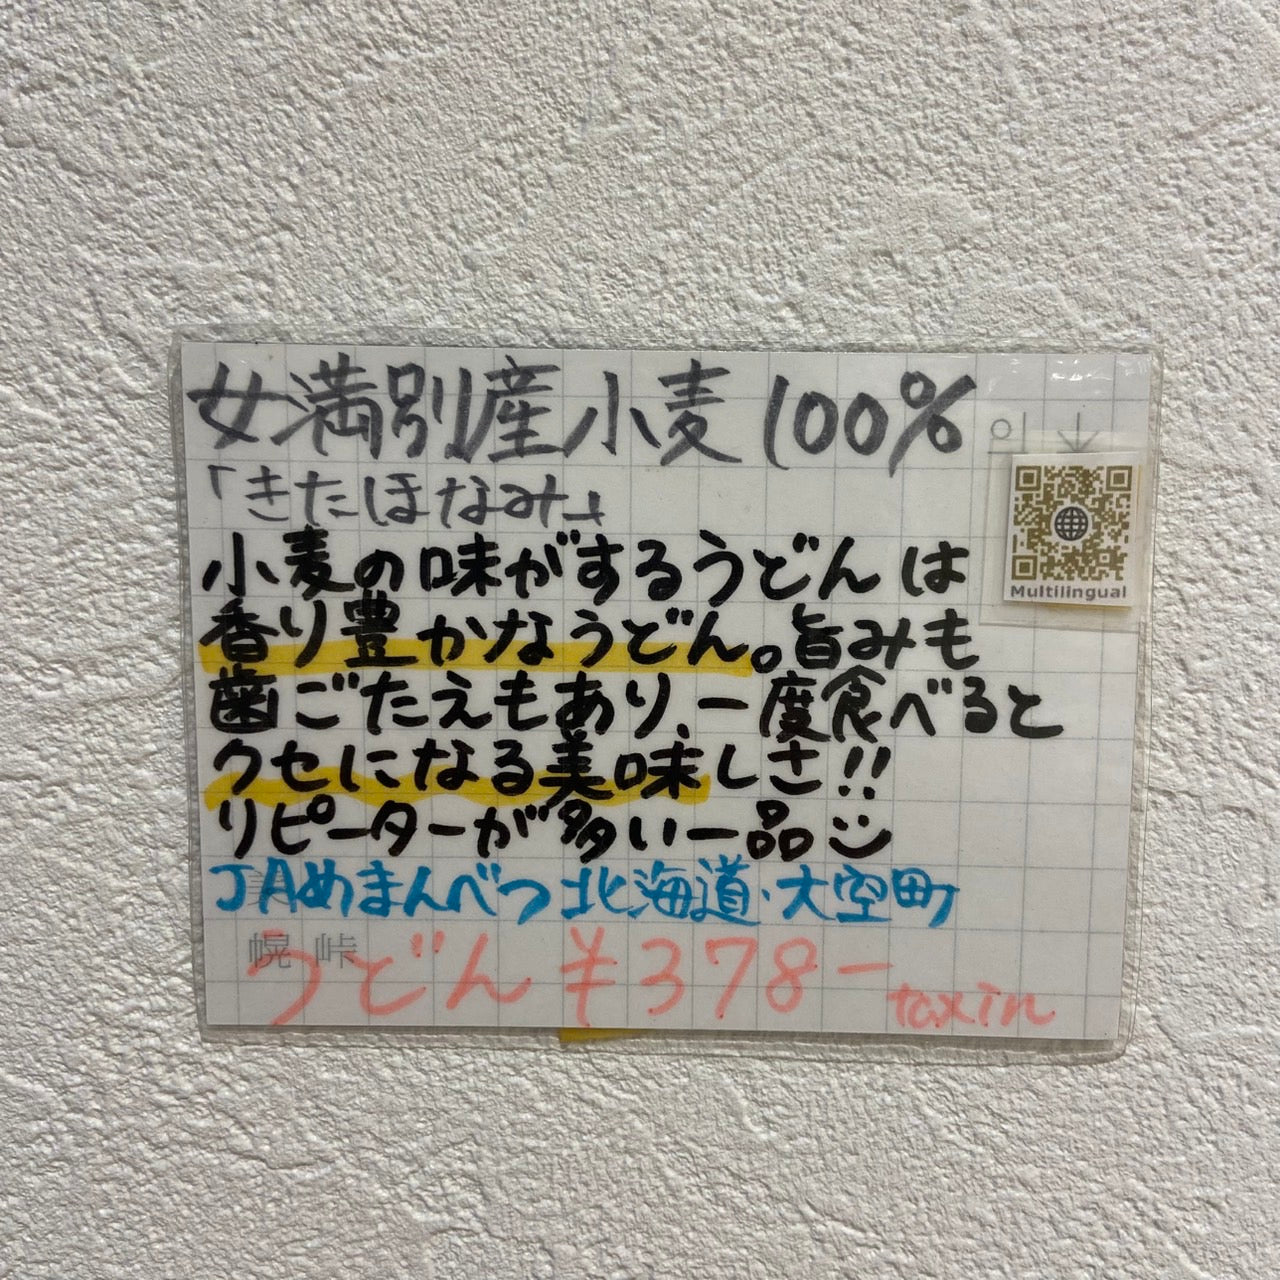 女満別産小麦100%
「きたほなみ」
Multilingual
小麦の味がするうどんは
香り豊かなうどん。旨みも
歯ごたえもあり、一度食べると
クセになる美味しさ!!
リピーターが多い一品
JAめまんべつ 北海道・大空町
幌 峠
うどん ¥378- taxin